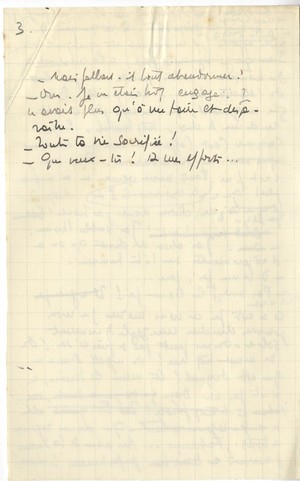 3.
_ Mais fallait-il tout abandonner!
_ Oui. Je m'étais trop engagé. Je
n'avais plus qu'à me taire et dispa-
raître.
_ Toute ta vie sacrifiée!
_ Que veux-tu! mes efforts...